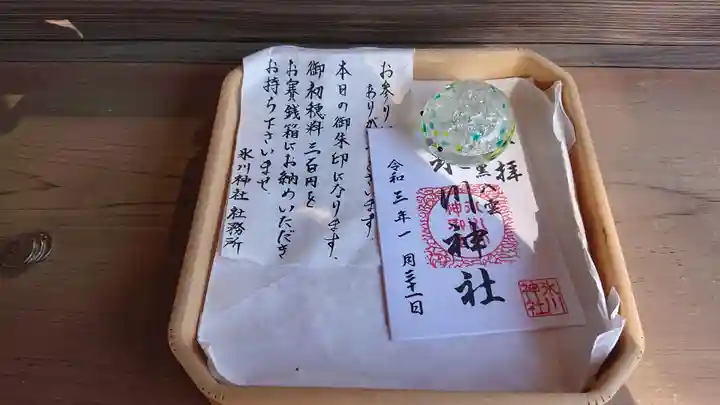 お参り
ありが ざいます。
本日の御朱印になります。
御初穂料 三百円を
お賽銭箱にお納めいただき
お持ち下さいませ
氷川神社 社務所
拝
黒八雲
川神社
氷川
神社
令和三年一月三十一日